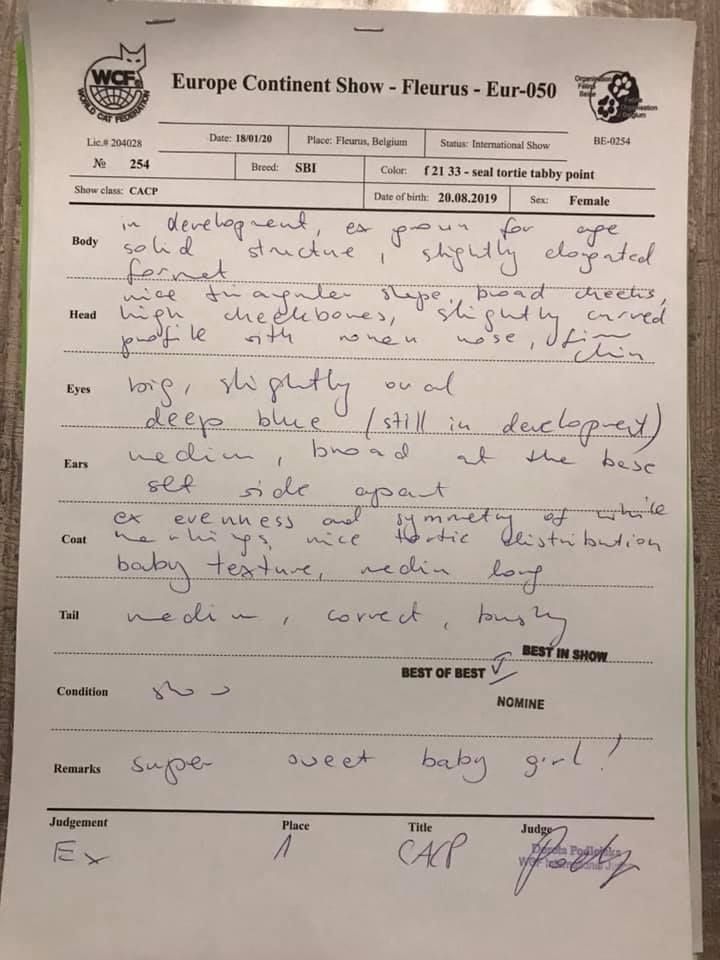 WCF®
WORLD CAT FEDERATION
Europe Continent Show - Fleurus - Eur-050
Organisation
Féline
Belge
Feline
Organisation
Belgium
Lic.# 204028 Date: 18/01/20 Place: Fleurus, Belgium Status: International Show BE-0254
№ 254 Breed: SBI Color: f 21 33 - seal tortie tabby point
Show class: CACP Date of birth: 20.08.2019 Sex: Female
Body in development, ex grown for age
solid structure, slightly elongated
format
Head nice triangular shape, broad cheeks,
high cheekbones, slightly curved
profile with roman nose, firm
chin
Eyes big, slightly oval
deep blue (still in development)
Ears medium, broad at the base
set side apart
Coat ex evenness and symmetry of white
markings, nice tortie distribution
baby texture, medium long
Tail medium, correct, bushy
BEST IN SHOW
BEST OF BEST
NOMINE
Condition show
Remarks super sweet baby girl!
Judgement Place Title Judge
Ex 1 CACP
Dorota Podlejska